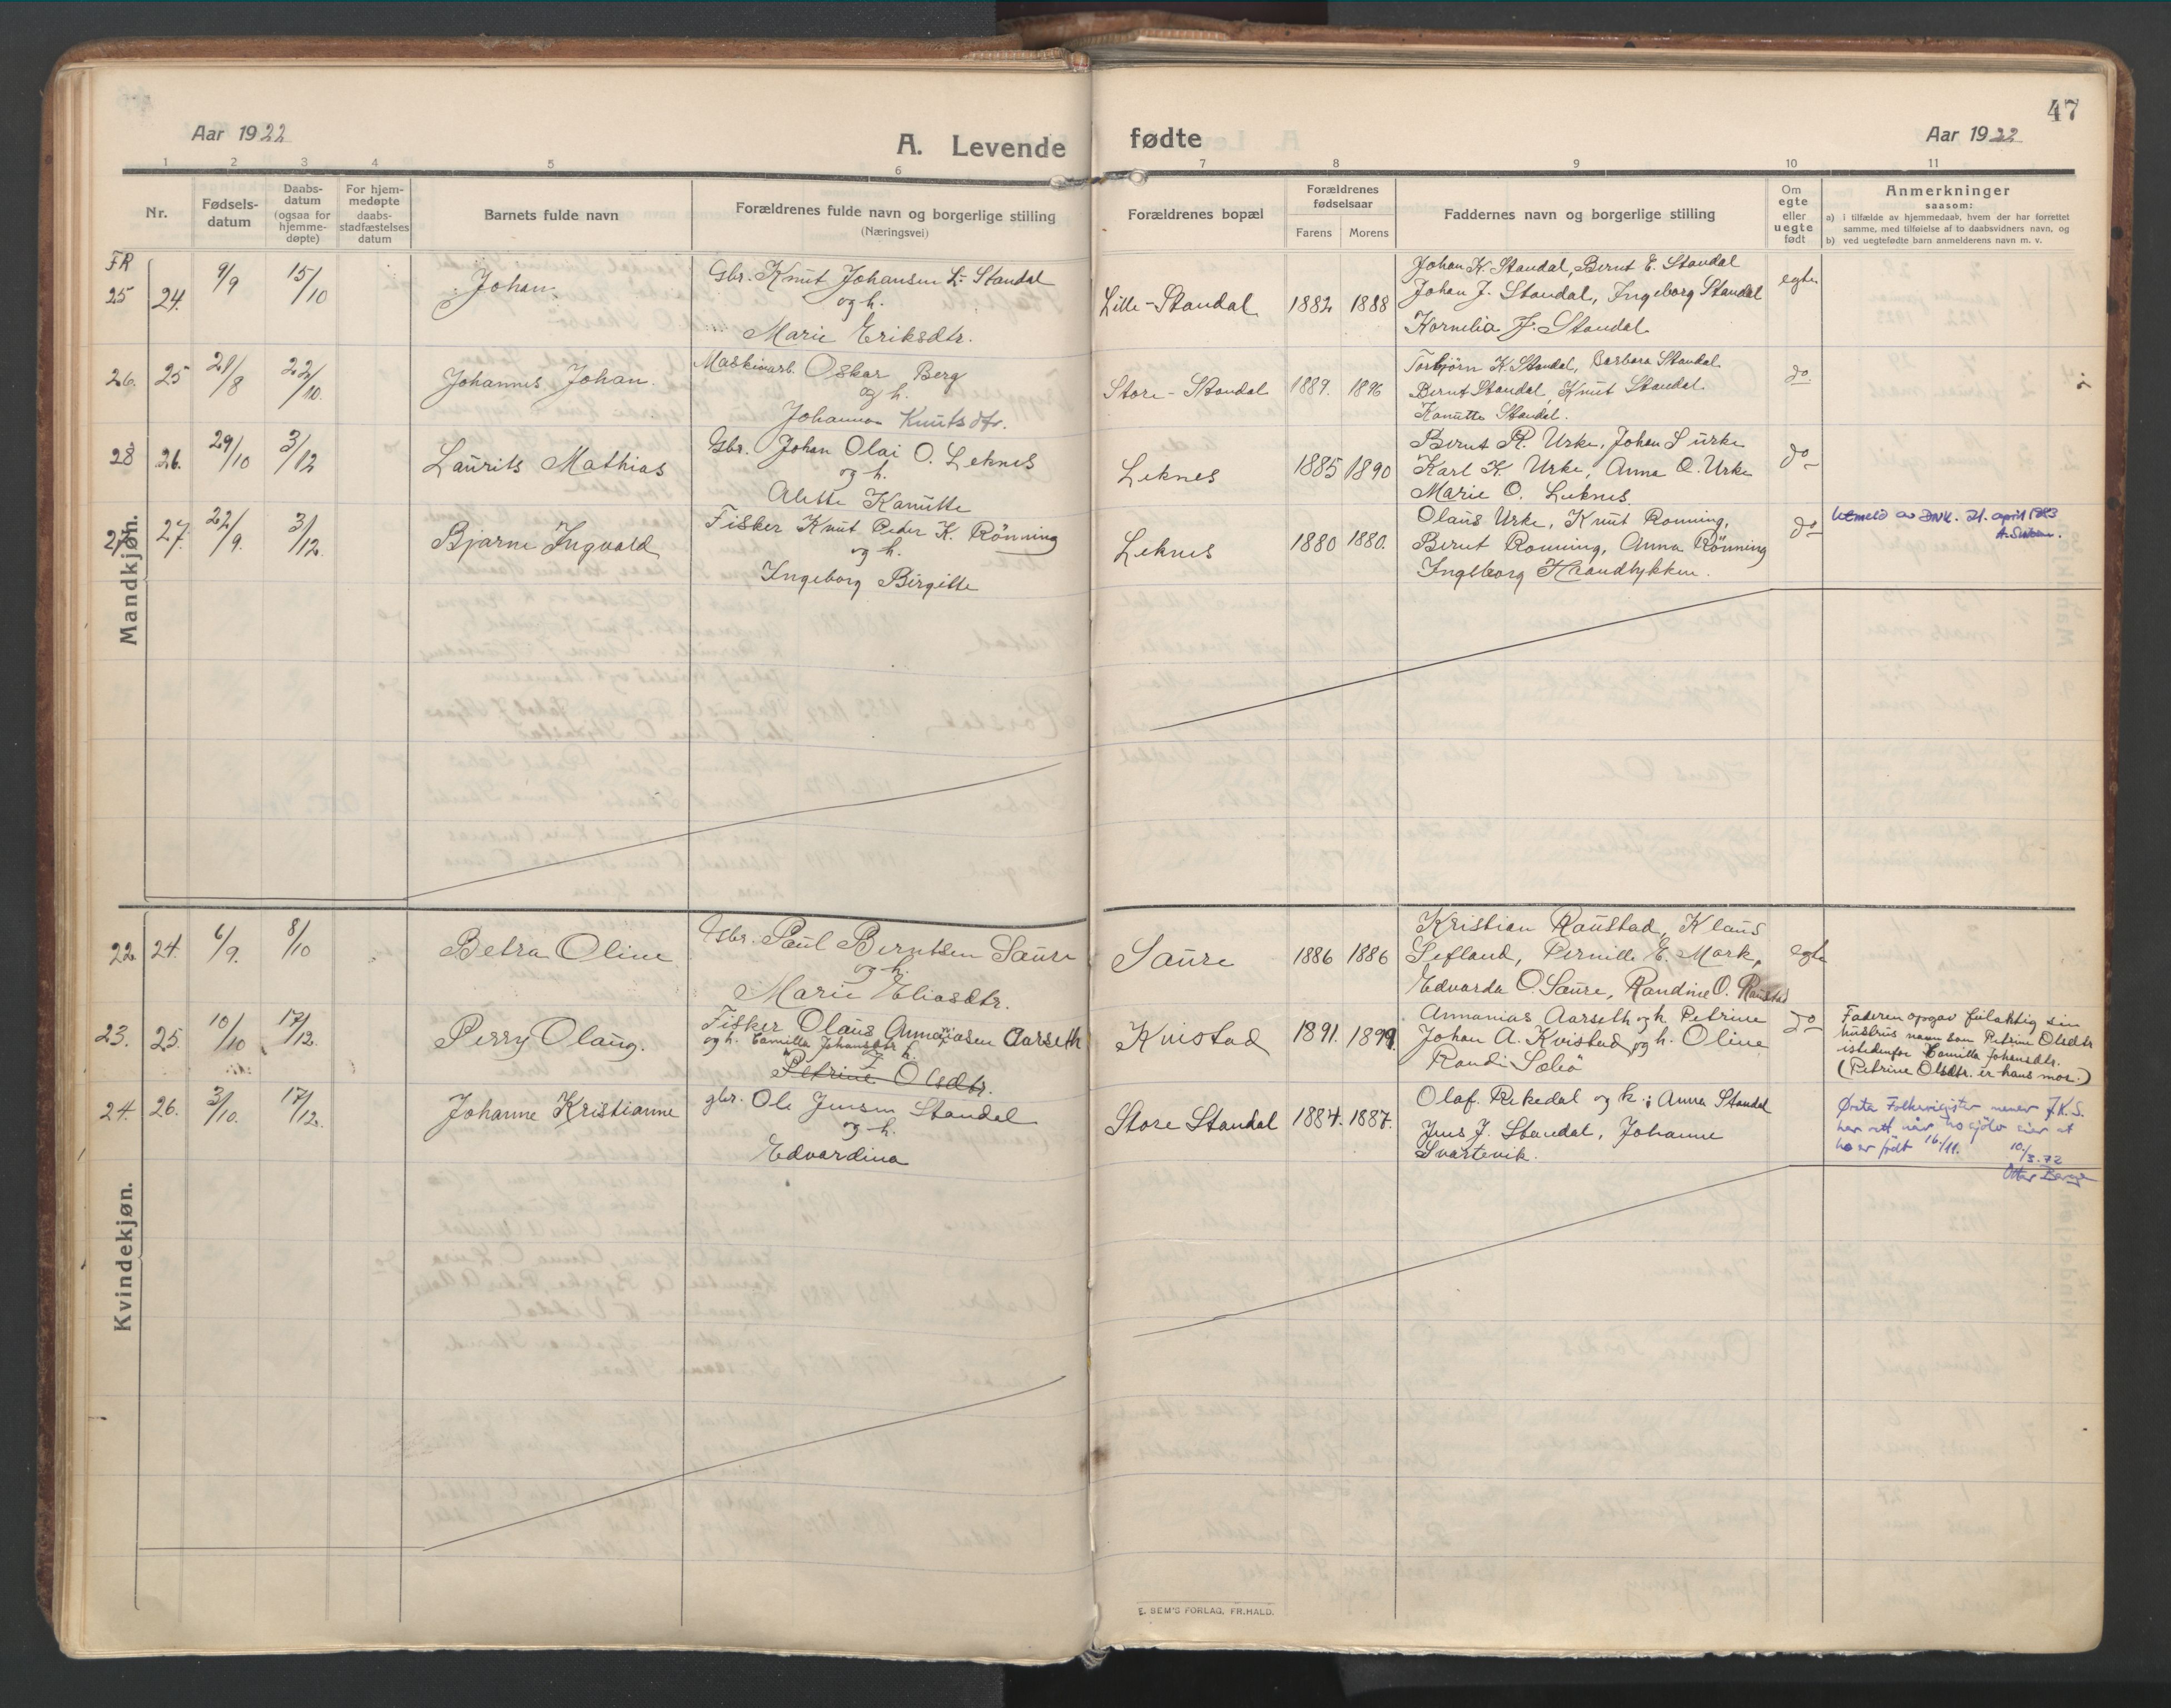 47
Aar 1922
A. Levende fødte
Aar 1922
1 2 3 4 5 6 7 8 9 10 11
Nr.
Fødsels-
datum
Daabs-
datum
(ogsaa for
hjemme-
døpte)
For hjem-
medøpte
daabs-
stadfæstelses
datum
Barnets fulde navn
Forældrenes fulde navn og borgerlige stilling
(Næringsvei)
Forældrenes bopæl
Forældrenes
fødselsaar
Farens Morens
Faddernes navn og borgerlige stilling
Om
egte
eller
uegte
født
Anmerkninger
saasom:
a) i tilfælde av hjemmedaab, hvem der har forrettet
samme, med tilføielse af to daabsvidners navn, og
b) ved uegtefødte barn anmelderens navn m. v.
Mandkjøn.
FR
25 24. 9/9 15/10 Johan.
Gbr. Knut Johansen L. Standal
og h.
Marie Eriksdtr.
Lille-Standal 1882 1888
Johan K. Standal, Bernt E. Standal
Johan J. Standal, Ingeborg Standal
Kornelia J. Standal
egte
26. 25 21/8 22/10. Johannes Johan.
Maskinarb. Oskar Berg
og h.
Johanna Knutsdtr.
Store-Standal 1889. 1896
Torbjörn K. Standal, Barbara Standal
Bernt Standal, Knut Standal
Kanutte Standal.
do.
28 26. 29/10 3/12 Laurits Mathias
Gbr. Johan Olai O. Leknes
og h.
Alette Kanutte
Leknes 1885 1890
Bernt R. Urke, Johan S Urke
Karl K. Urke, Anna O. Urke
Marie O. Leknes
do
27. 27. 22/9. 3/12. Bjarne Ingvald
Fisker Knut Peder K. Rönning
og h.
Ingeborg Birgitte
Leknes 1880 1880.
Olaus Urke, Knut Ronning,
Bernt Ronning, Anna Rönning
Ingeborg
do
Utmeld av DNK. 21. april 1983
Kvindekjøn.
22. 24. 6/9. 8/10 Betra Oline
Gbr. Paul Berntsen Saure
og h.
Marie Eliasdtr.
Saure 1886 1886
Kristian Raustad, Klaus
Sefland, Pernille E. Mork,
Edvarda O. Saure, Randine O. Raustad
egte
23. 25. 10/10 17/12. Perry Olaug.
Fisker Olaus Annaniasen Aarseth
og h. Camilla Johansdtr
Petrine Olsdtr.
Kvistad 1891. 1899.
Annanias Aarseth og h. Petrine
Johan A. Kvistad og h. Oline
Randi Sæbö
do
Faderen opgav feilaktig sin
hustrus navn som Petrine Olsdtr
istedenfor Camilla Johansdtr.
(Petrine Olsdtr. er hans mor.)
24. 26. 3/10. 17/12. Johanne Kristianne
gbr. Ole Jensen Standal
og h.
Edvardina
Store Standal 1884. 1887.
Olaf Rekedal og h.; Anna Standal
Jens J. Standal, Johanne
Svartevik.
Ørsta Folkeregister nemner J.K.S.
har rett når ho sjølv sier at
ho er født 16/11. 10/3.72
E. SEM'S FORLAG, FR.HALD.